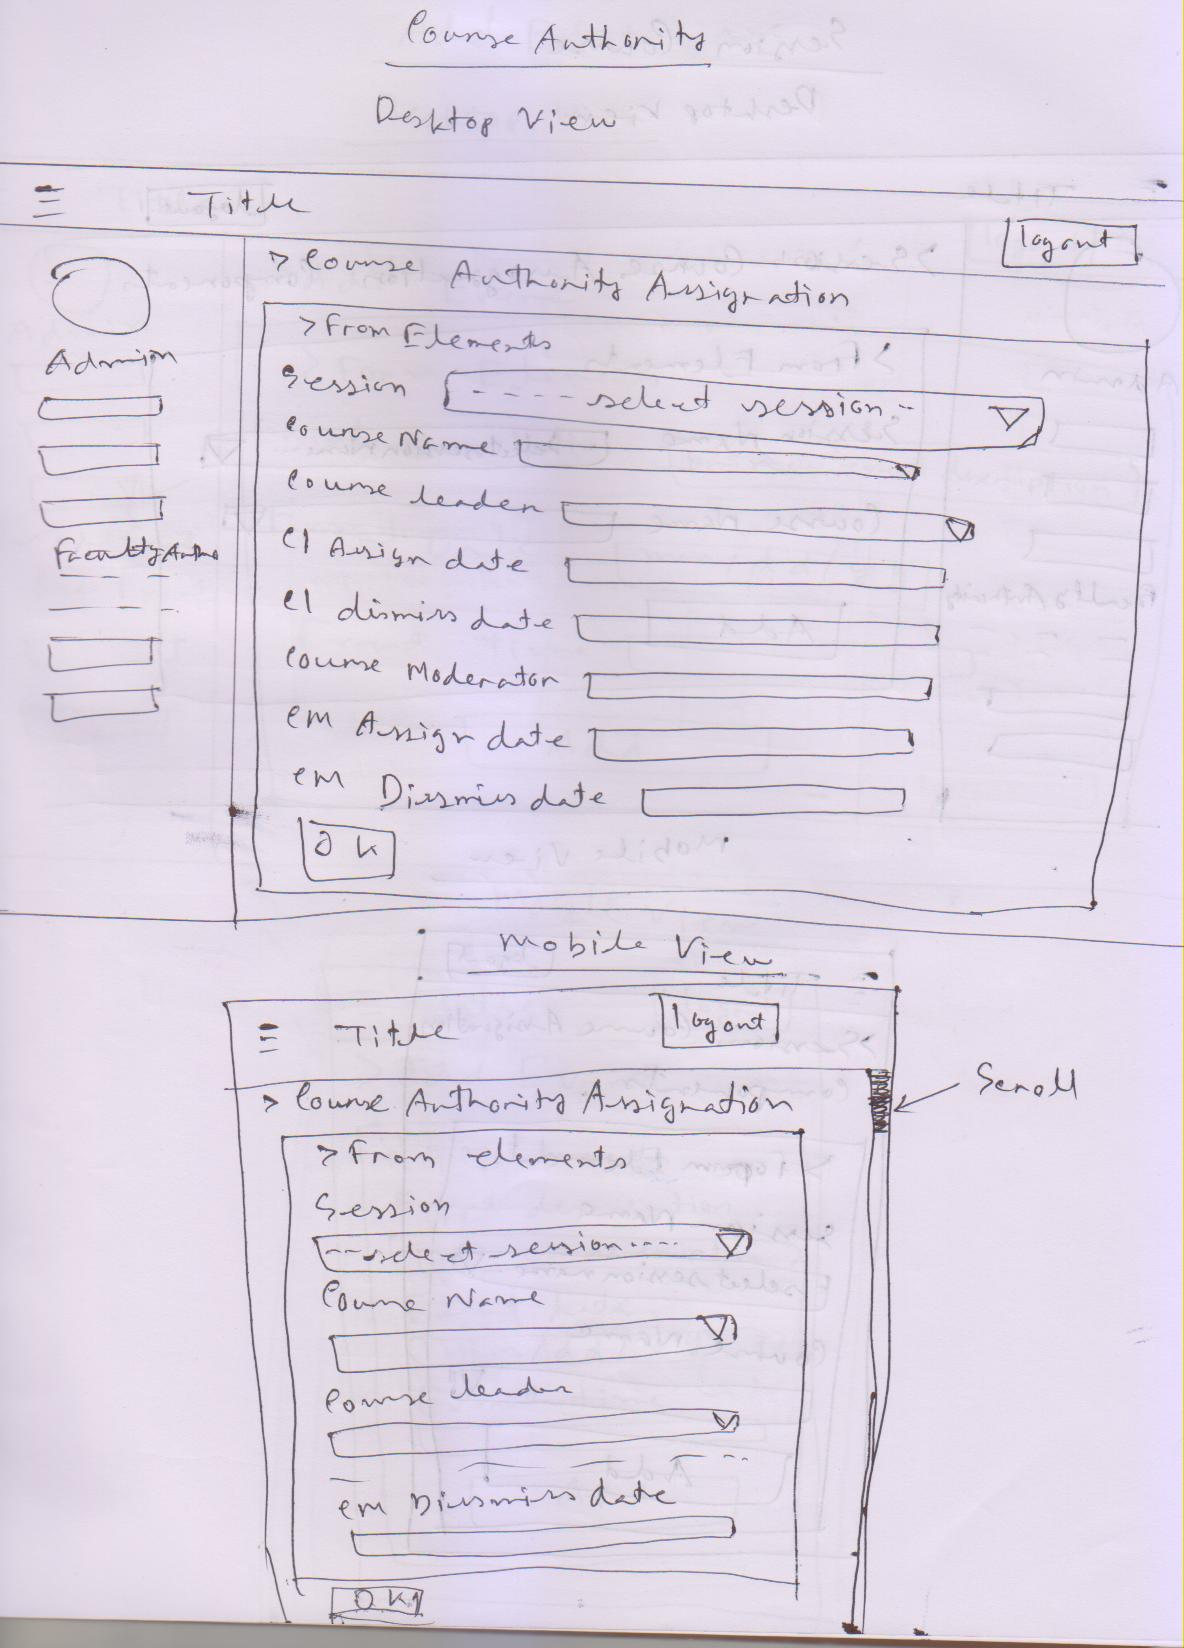 Course Authority
Desktop View
Title
logout
> Course Authority Assignation
Admin
Faculty Autho
> From Elements
Session ---- select session --
Course Name
Course leader
Cl Assign date
Cl dismiss date
Course Moderator
cm Assign date
cm Dissmiss date
OK
Mobile View
Title
logout
Scroll
> Course Authority Assignation
> From elements
Session
-- select session ----
Course Name
Course leader
cm Dissmiss date
OK